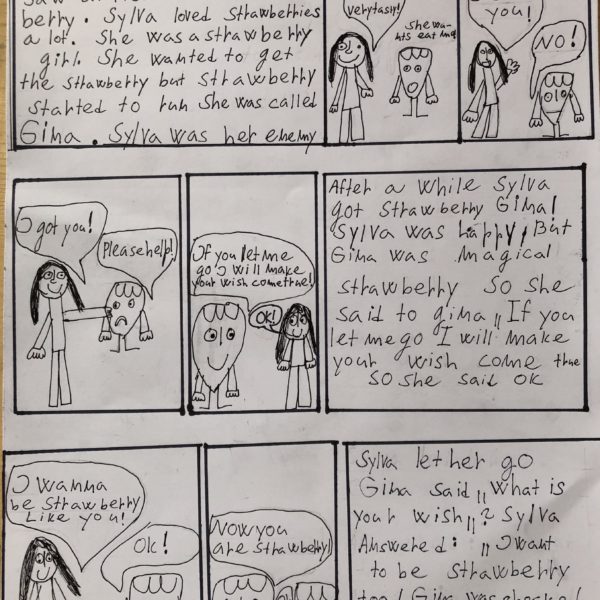 berry. Sylva loved strawberries
a lot. She was a strawberry
girl. She wanted to get
the strawberry but strawberry
started to run she was called
Gima. Sylva was her enemy
Verytasty!
she wa-
nts eat me
you!
NO!
I got you!
Please help!
If you let me
go I will make
your wish come true!
OK!
After a while Sylva
got strawberry Gima!
Sylva was happy, But
Gima was magical
strawberry so she
said to gima ,, If you
let me go I will make
your wish come true
so she said ok
I wanna
be strawberry
Like you!
Ok!
Now you
are strawberry!
Sylva let her go
Gima said ,, What is
your wish,, ? Sylva
Answered: ,, I want
to be strawberry
too! Gima was shocked